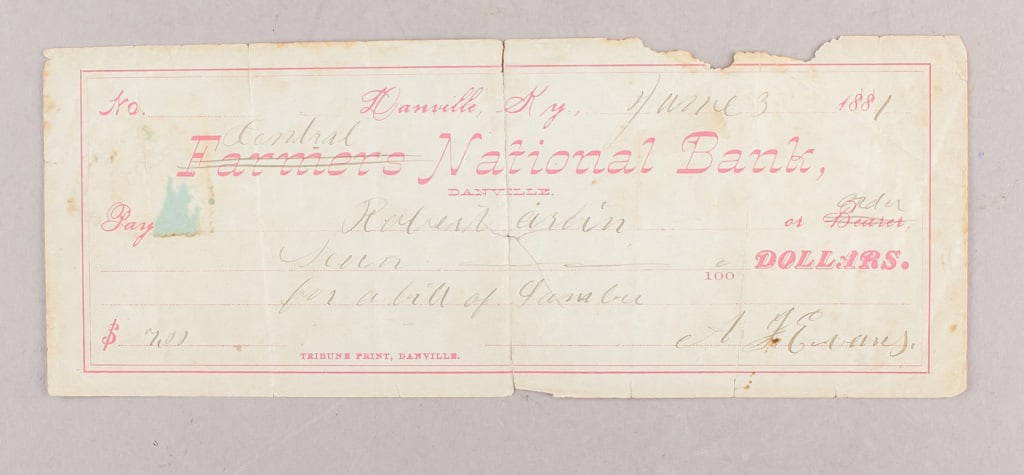 No. Danville, Ky., June 3 1881
Central
Farmers National Bank,
DANVILLE.
order
Pay Robert or Bearer,
Seven 100 DOLLARS.
for a bill of Lumber
$ 7.00 A F Evans.
TRIBUNE PRINT, DANVILLE.